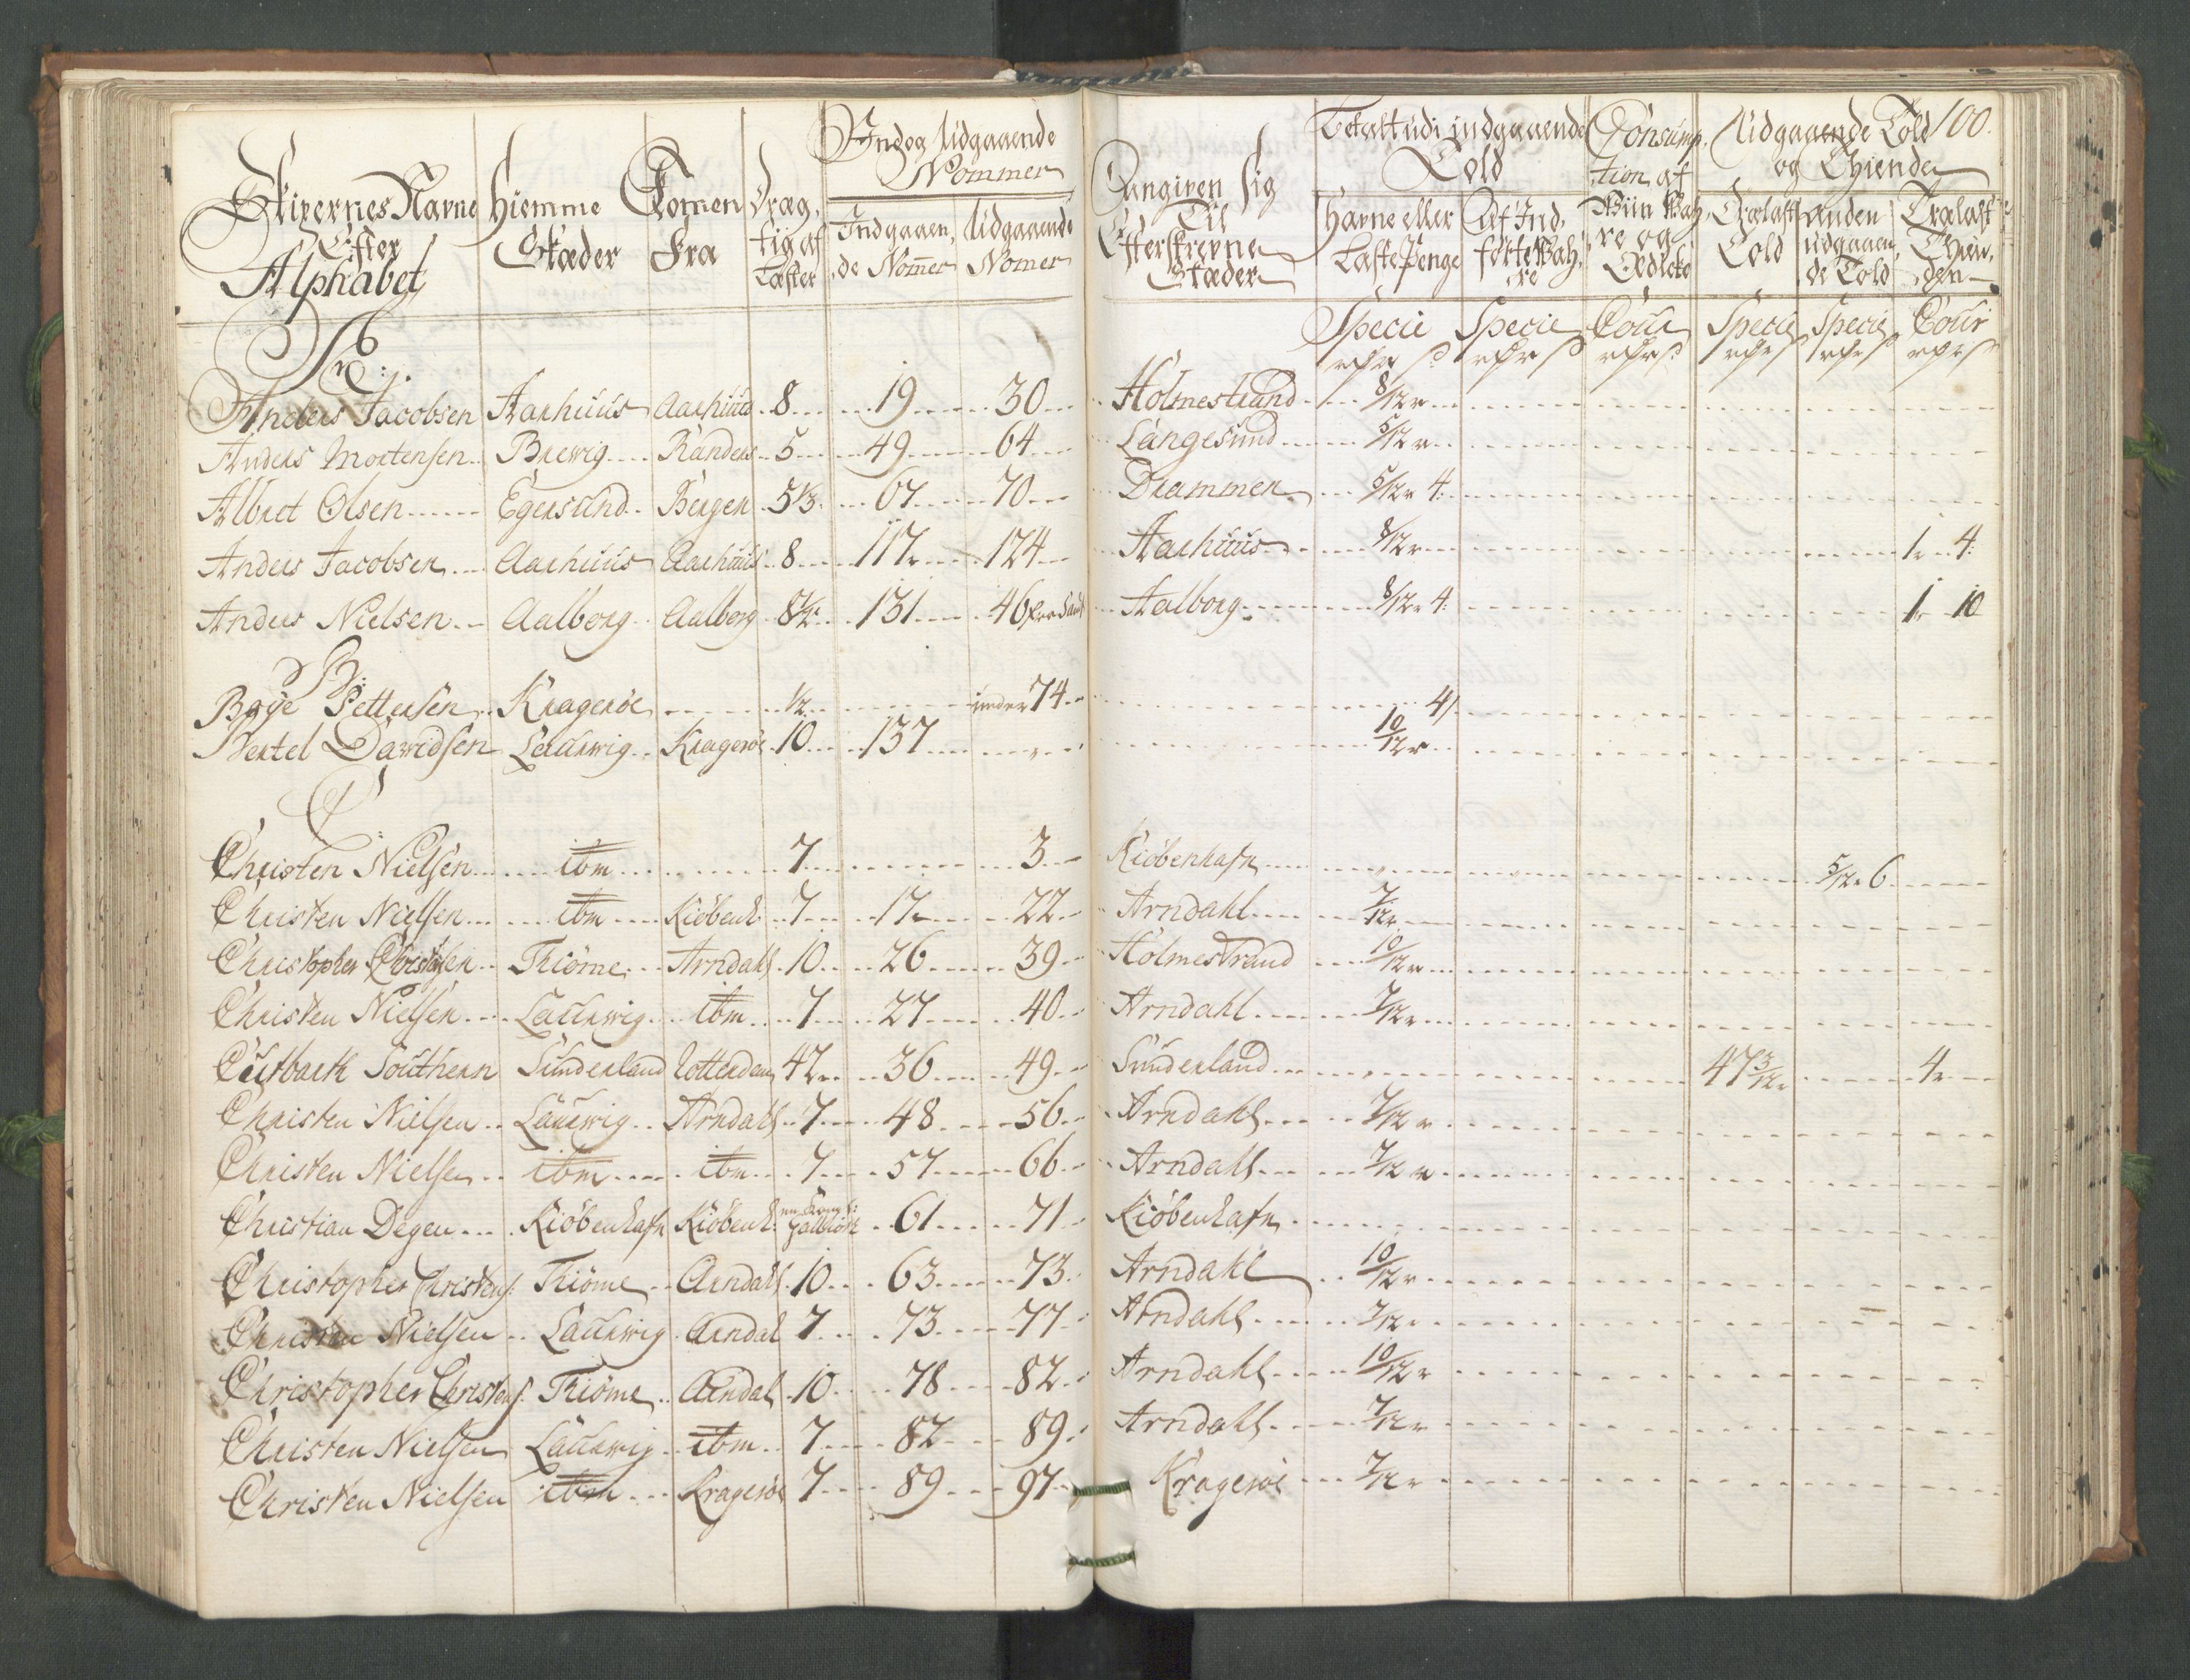 Skipernes Navne Efter Alphabet
Hiemme Stæder
Komen Fra
Dræg, tig af Læster
Ind og Udgaaende Nommer
Indgaaen, de Nom̅er
Udgaaende Nomer
Angiven sig Til Efterskrevne Stæder
Betalt udi indgaaende Told
Havne eller Laste Penge
Af Ind, førte Wah, re
Consump, tion af Wiin Wah, re og
Udgaaende Told og Thiende
100.
Trælast Told
Anden udgaaen, de Told
Trælast Thien, den
Specie Specie Cour Specie Specie Cour
A:
Anders Jacobsen Aarhuus Aarhuus 8 19 30 Holmestrand 8/12
Anders Mortensen Brewig Randers 5 49 64 Langesund 5/12
Albret Olsen Egersund Bergen 5 1/3 67 70 Drammen 5/12 4
Anders Jacobsen Aarhuus Aarhuus 8 117 124 Aarhuus 8/12 1 4
Anders Nielsen Aalborg Aalborg 8 1/2 131 46 Aalborg 8/12 4 1 10
B:
Boye Pettersen Kragerøe 1/2 under 74 4
Bertel Dawidsen Laurwig Kragerøe 10 137 10/12
C
Christen Nielsen ibm 7 3 Kiøbenhafn 5/12 6
Christen Nielsen ibm Kiøbenh. 7 17 22 Arndahl 7/12
Christopher Christensen Thiöme Arndahl 10 26 39 Holmestrand 10/12
Christen Nielsen Laurwig ibm 7 27 40 Arndahl 7/12
Cutbarth Southern Sunderland Rotterdam 42 36 49 Sunderland 47 3/12 4
Christen Nielsen Laurwig Arndahl 7 48 56 Arndahl 7/12
Christen Nielsen ibm ibm 7 57 66 Arndahl 7/12
Christian Degen Kiøbenhafn Kiøbenh: 61 71 Kiøbenhafn
Christopher Christens: Thiöme Arndahl 10 63 73 Arndahl 10/12
Christen Nielsen Laurwig Arndal 7 73 77 Arndahl 7/12
Christopher Christens: Thiöme Arndal 10 78 82 Arndahl 10/12
Christen Nielsen Laurwig ibm 7 82 89 Arndahl 7/12
Christen Nielsen ibm Kragerøe 7 89 97 Kragerøe 7/12